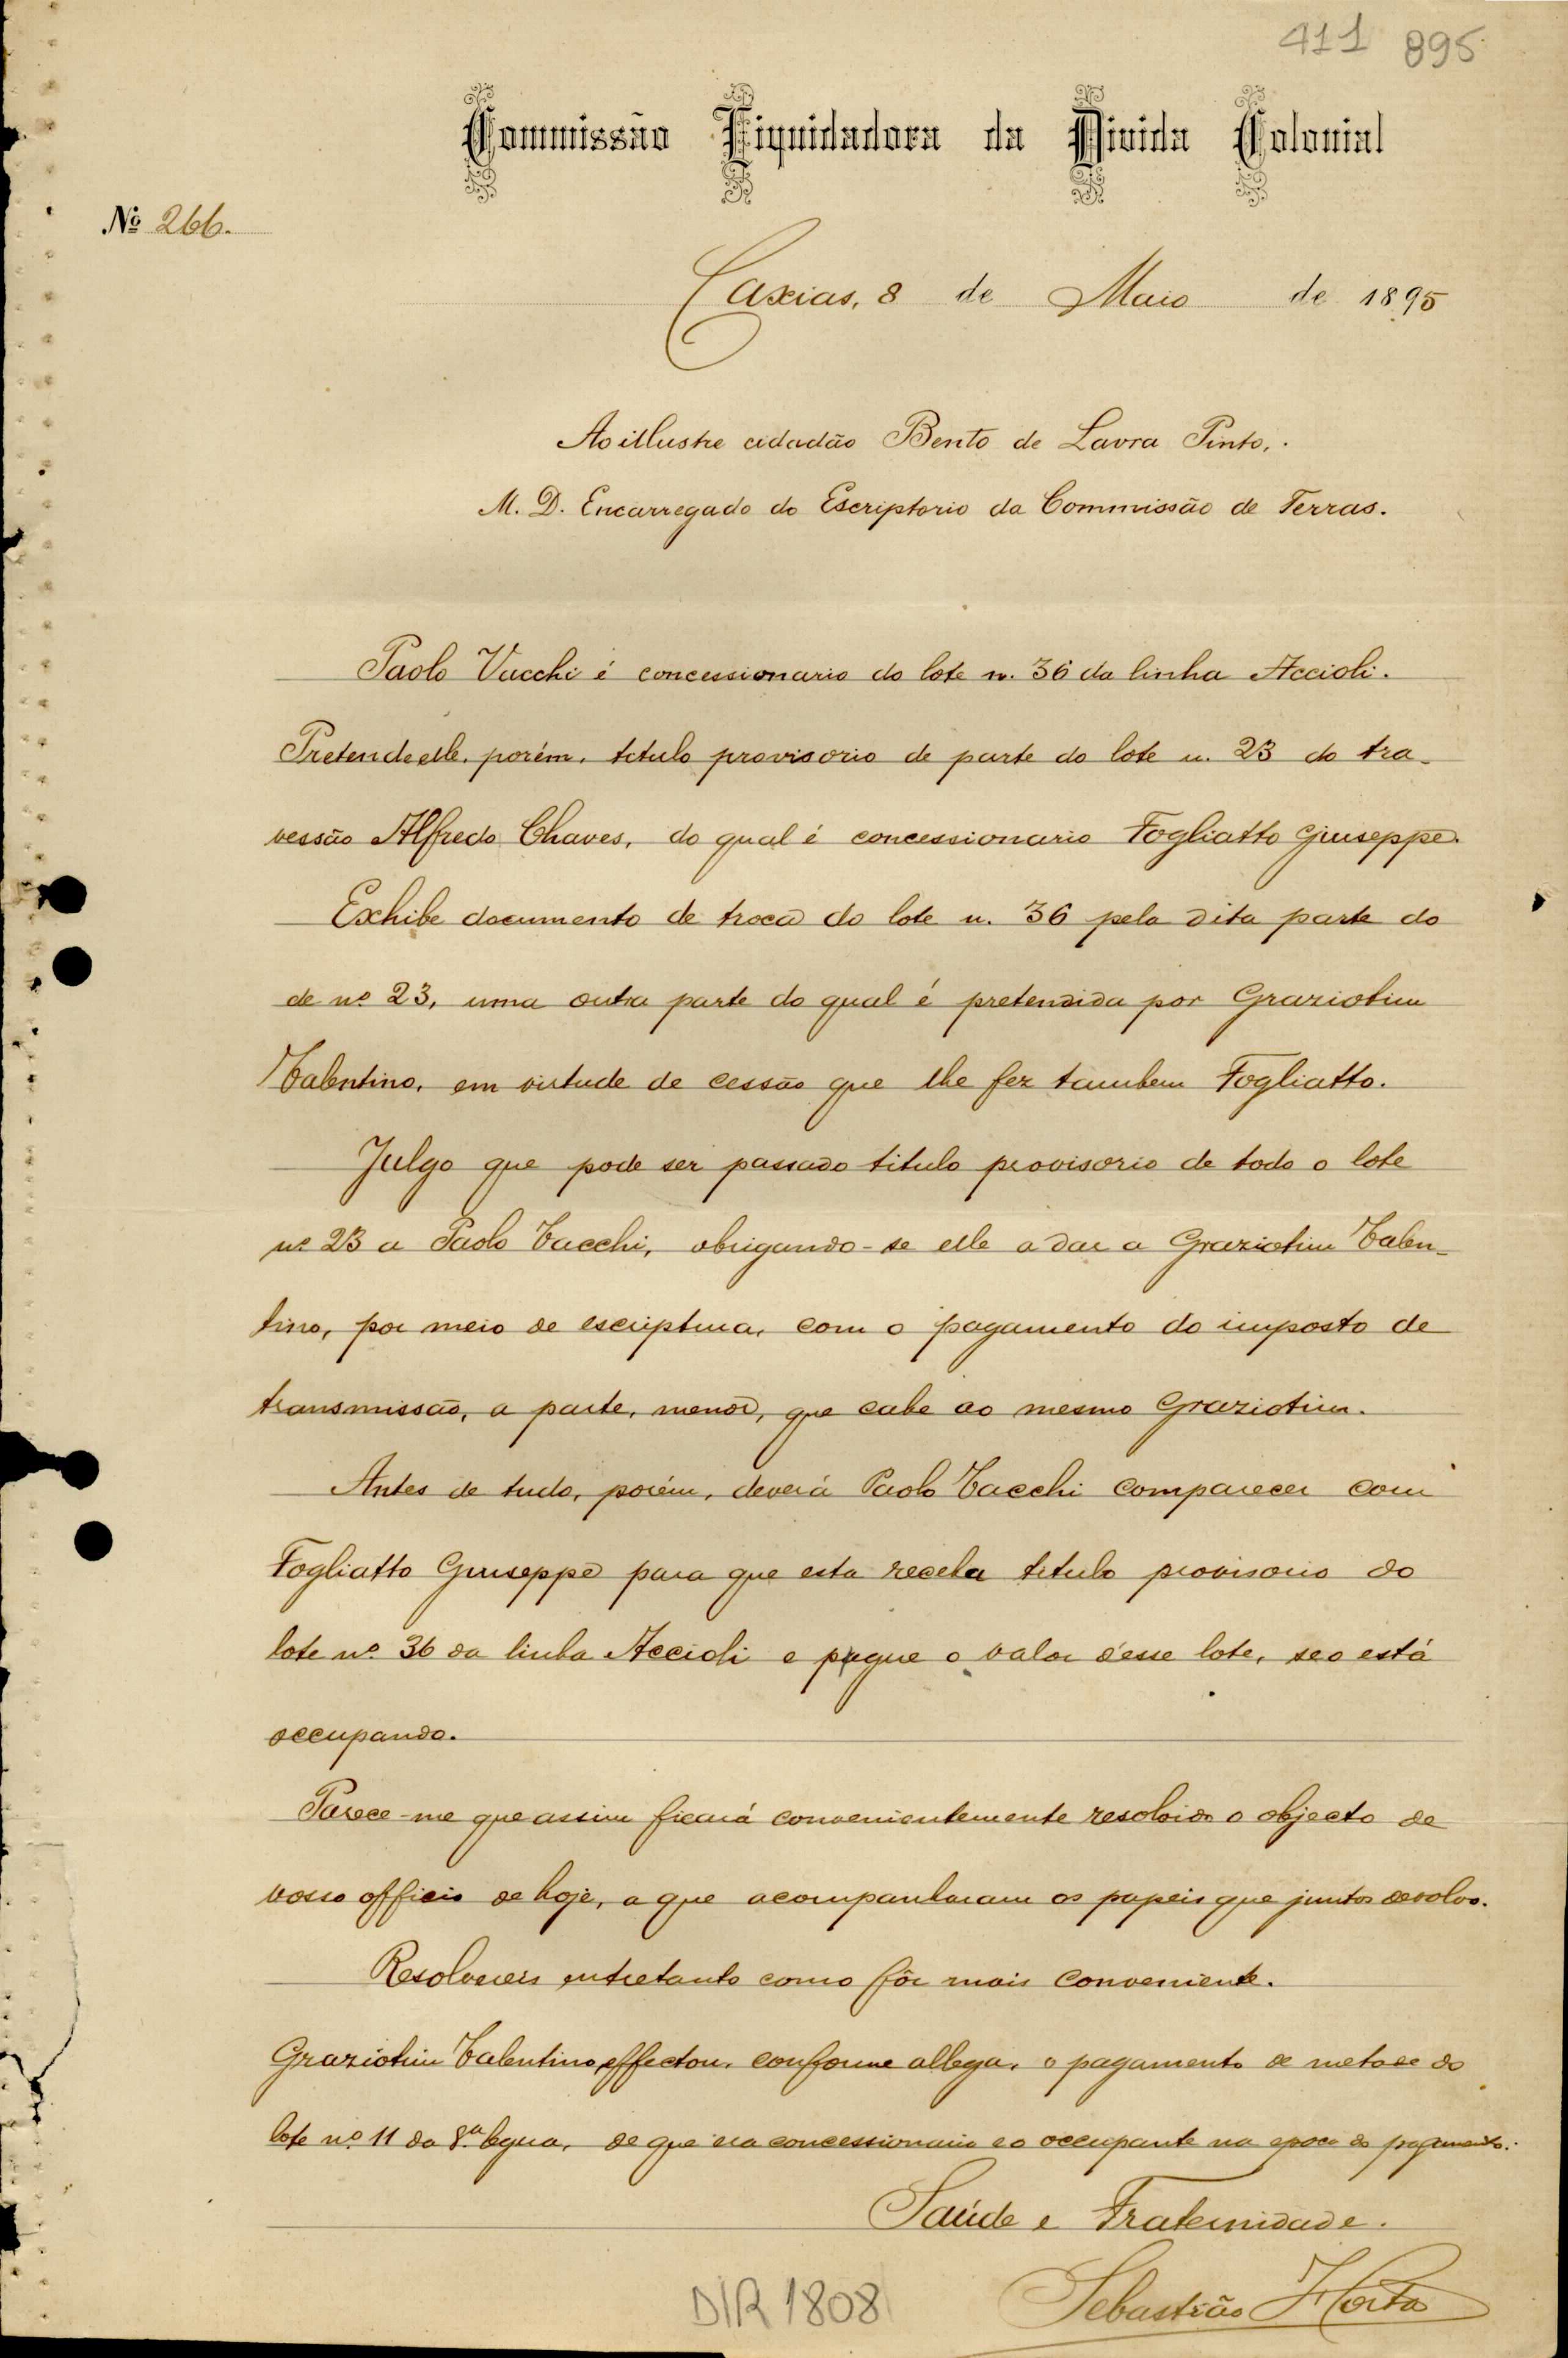 411 895
Commissão Liquidadora da Divida Colonial
Nº 266.
Caxias, 8 de Maio de 1895
Ao illustre cidadão Bento de Lavra Pinto,
M. D. Encarregado do Escriptorio da Commissão de Terras.
Paolo Vacchi é concessionario do lote n. 36 da linha Accioli.
Pretende elle, porém, titulo provisorio de parte do lote n. 23 do tra-
vessão Alfredo Chaves, do qual é concessionario Fogliatto Giuseppe.
Exhibe documento de troca do lote n. 36 pela dita parte do
de nº 23, uma outra parte do qual é pretendida por Graziotim
Valentino, em virtude de cessão que lhe fez tambem Fogliatto.
Julgo que pode ser passado titulo provisorio de todo o lote
nº 23 a Paolo Vacchi, obrigando-se elle a dar a Graziotim Valen-
tino, por meio de escriptura, com o pagamento do imposto de
transmissão, a parte, menor, que cabe ao mesmo Graziotim.
Antes de tudo, porém, deverá Paolo Vacchi comparecer com
Fogliatto Giuseppe para que esta receba titulo provisorio do
lote nº 36 da linha Accioli e pague o valor d'esse lote, se o está
occupando.
Parece-me que assim ficará convenientemente resolvido o objecto de
vosso officio de hoje, a que acompanharam os papeis que juntos devolvo.
Resolvereis entretanto como fôr mais conveniente.
Graziotim Valentino effectou, conforme allega, o pagamento de metade do
lote nº 11 da 8ª legua, de que era concessionario e o occupante na epoca do pagamento.
Saúde e Fraternidade.
Sebastião Horta
DIR 1808